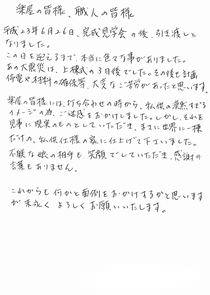 楽屋の皆様、職人の皆様
平成23年6月26日、完成見学会の後、引き渡しと
なりました。
この日を迎えるまで、本当に色々な事がありました。
あの大震災は、上棟の3日後でした。その後も計画
停電や材料の確保等、大変なご苦労があったと思います。
楽屋の皆様には、打ち合わせの時から、私供の漠然とした
イメージの為、ご迷惑をおかけしました。しかし、それを
見事に現実のものとしていただき、まさに世界に一棟
だけの、私供仕様の家に仕上げて下さいました。
不慣な娘の相手も、笑顔でしていただき、感謝の
言葉もありません。
これからも何かと面倒をおかけするかと思います
が末永くよろしくお願いいたします。